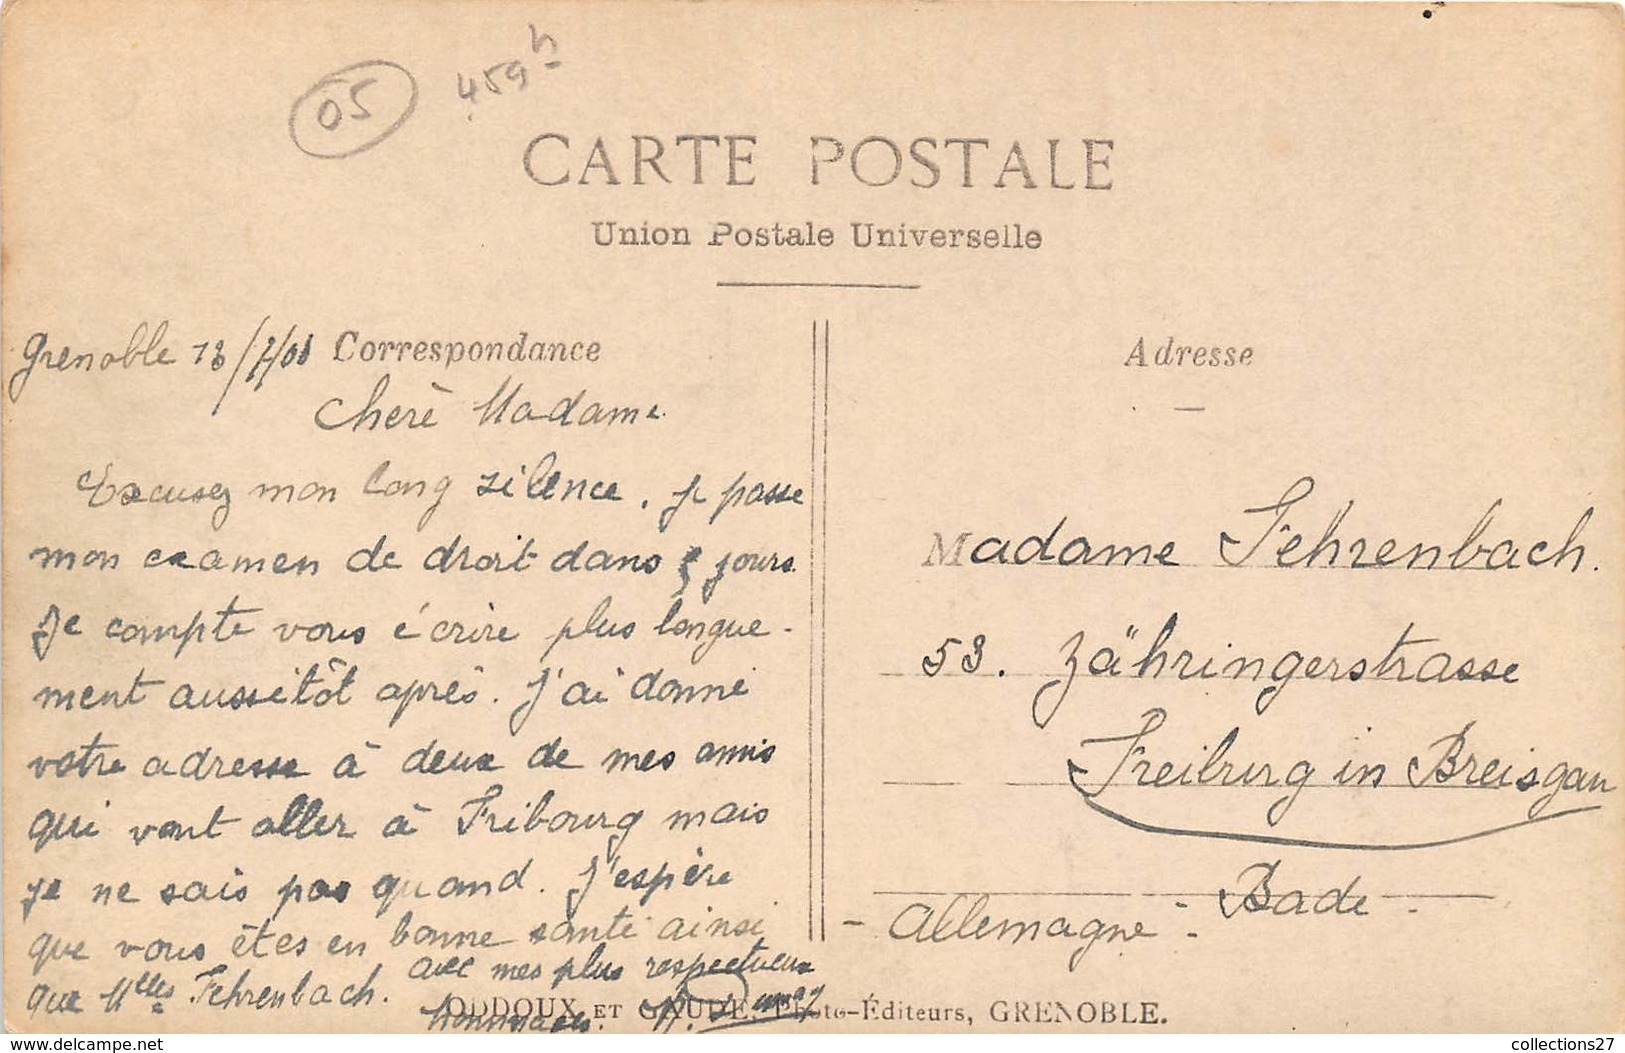 05
459 h
CARTE POSTALE
Union Postale Universelle
Correspondance
Adresse
Grenoble 13/7/08
Cherè Madame
Excusez mon long silence. Je passe
mon examen de droit dans jours.
Je compte vous écrire plus longue-
ment aussitôt après. J'ai donné
votre adresse à deux de mes amis
qui vont aller à Fribourg mais
je ne sais pas quand. J'espère
que vous êtes en bonne santé ainsi
que Mlles Fehrenbach. avec mes plus respectueux
hommages.
Madame Fehrenbach.
53. Zähringerstrasse
Freiburg in Breisgau
Bade.
- Allemagne -
ODDOUX ET GAUDE, Photo-Éditeurs, GRENOBLE.
collections27